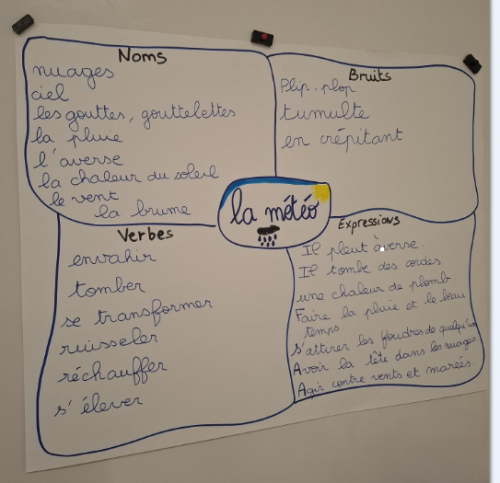 Noms
nuages
ciel
les gouttes, gouttelettes
la pluie
l'averse
la chaleur du soleil
le vent
la brume
Bruits
Plip-plop
tumulte
en crépitant
la météo
Verbes
envahir
tomber
se transformer
ruisseler
réchauffer
s'élever
Expressions
Il pleut à verse.
Il tombe des cordes
une chaleur de plomb
Faire la pluie et le beau
temps.
S'attirer les foudres de quelqu'un
Avoir la tête dans les nuages
Agir contre vents et marées.